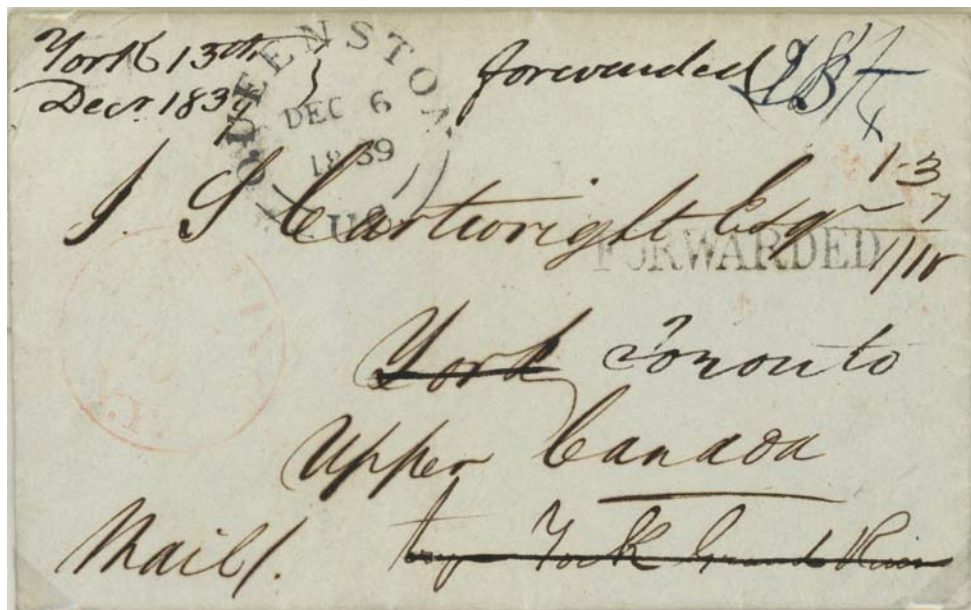 York 13th
Decr 1839
forwarded
QUEENSTON
DEC 6
1839
U C
1-3
7
1/10
J. S. Cartwright Esqr
FORWARDED
York Toronto
Upper Canada
Mail/. York Grand River